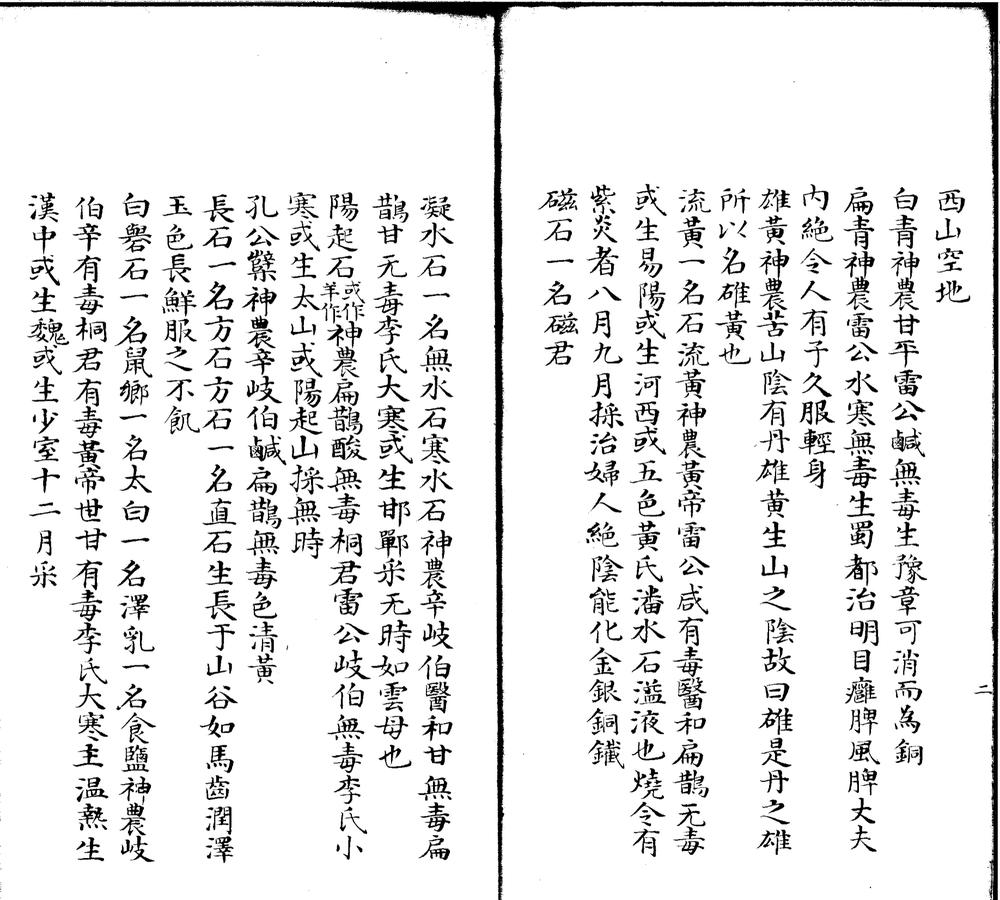 西山空地
白青神農甘平雷公鹹無毒生豫章可消而為銅
扁青神農雷公水寒無毒生蜀都治明目癰脾風脾丈夫
内絶令人有子久服輕身
雄黄神農苦山陰有丹雄黄生山之陰故曰雄是丹之雄
所以名雄黄也
流黄一名石流黄神農黄帝雷公咸有毒醫和扁鵲无毒
或生易陽或生河西或五色黄氏潘水石溢液也燒令有
紫炎者八月九月採治婦人絶陰能化金銀銅鐵
磁石一名磁君
二
凝水石一名無水石寒水石神農辛岐伯醫和甘無毒扁
鵲甘无毒李氏大寒或生邯鄲采无時如雲母也
陽起石或作羊作神農扁鵲酸無毒桐君雷公岐伯無毒李氏小
寒或生太山或陽起山採無時
孔公孼神農辛岐伯鹹扁鵲無毒色清黄
長石一名方石方石一名直石生長于山谷如馬齒潤澤
玉色長鮮服之不飢
白礜石一名鼠鄉一名太白一名澤乳一名食鹽神農岐
伯辛有毒桐君有毒黄帝世甘有毒李氏大寒主温熱生
漢中或生魏或生少室十二月采